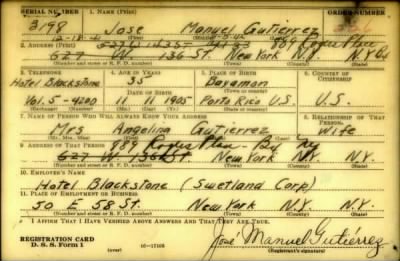 SERIAL NUMBER 1. NAME (Print) ORDER NUMBER
3198 Jose Manuel Gutierrez
(First) (Middle) (Last)
2. ADDRESS (Print) 889
627 W. 136 St. New York N.Y.
(Number and street or R. F. D. number) (Town) (County) (State)
3. TELEPHONE 4. AGE IN YEARS 5. PLACE OF BIRTH 6. COUNTRY OF CITIZENSHIP
Hotel Blackstone 35 Bayaman
DATE OF BIRTH
Vol. 5-4200 11 11 1905 Porto Rico U.S.
(Exchange) (Number) (Mo.) (Day) (Yr.) (State or country)
7. NAME OF PERSON WHO WILL ALWAYS KNOW YOUR ADDRESS 8. RELATIONSHIP OF THAT PERSON
Mrs Angelina Gutierrez Wife
(Mr., Mrs., Miss) (First) (Middle) (Last)
9. ADDRESS OF THAT PERSON 889
627 W. 136 St New York N.Y. N.Y.
(Number and street or R. F. D. number) (Town) (County) (State)
10. EMPLOYER'S NAME
Hotel Blackstone (Swetland Corp)
11. PLACE OF EMPLOYMENT OR BUSINESS
50 E 58 St. New York N.Y. N.Y.
(Number and street or R. F. D. number) (Town) (County) (State)
I AFFIRM THAT I HAVE VERIFIED ABOVE ANSWERS AND THAT THEY ARE TRUE.
REGISTRATION CARD
D. S. S. FORM 1 (over) 16-17105 José Manuel Gutiérrez
(Registrant's signature)